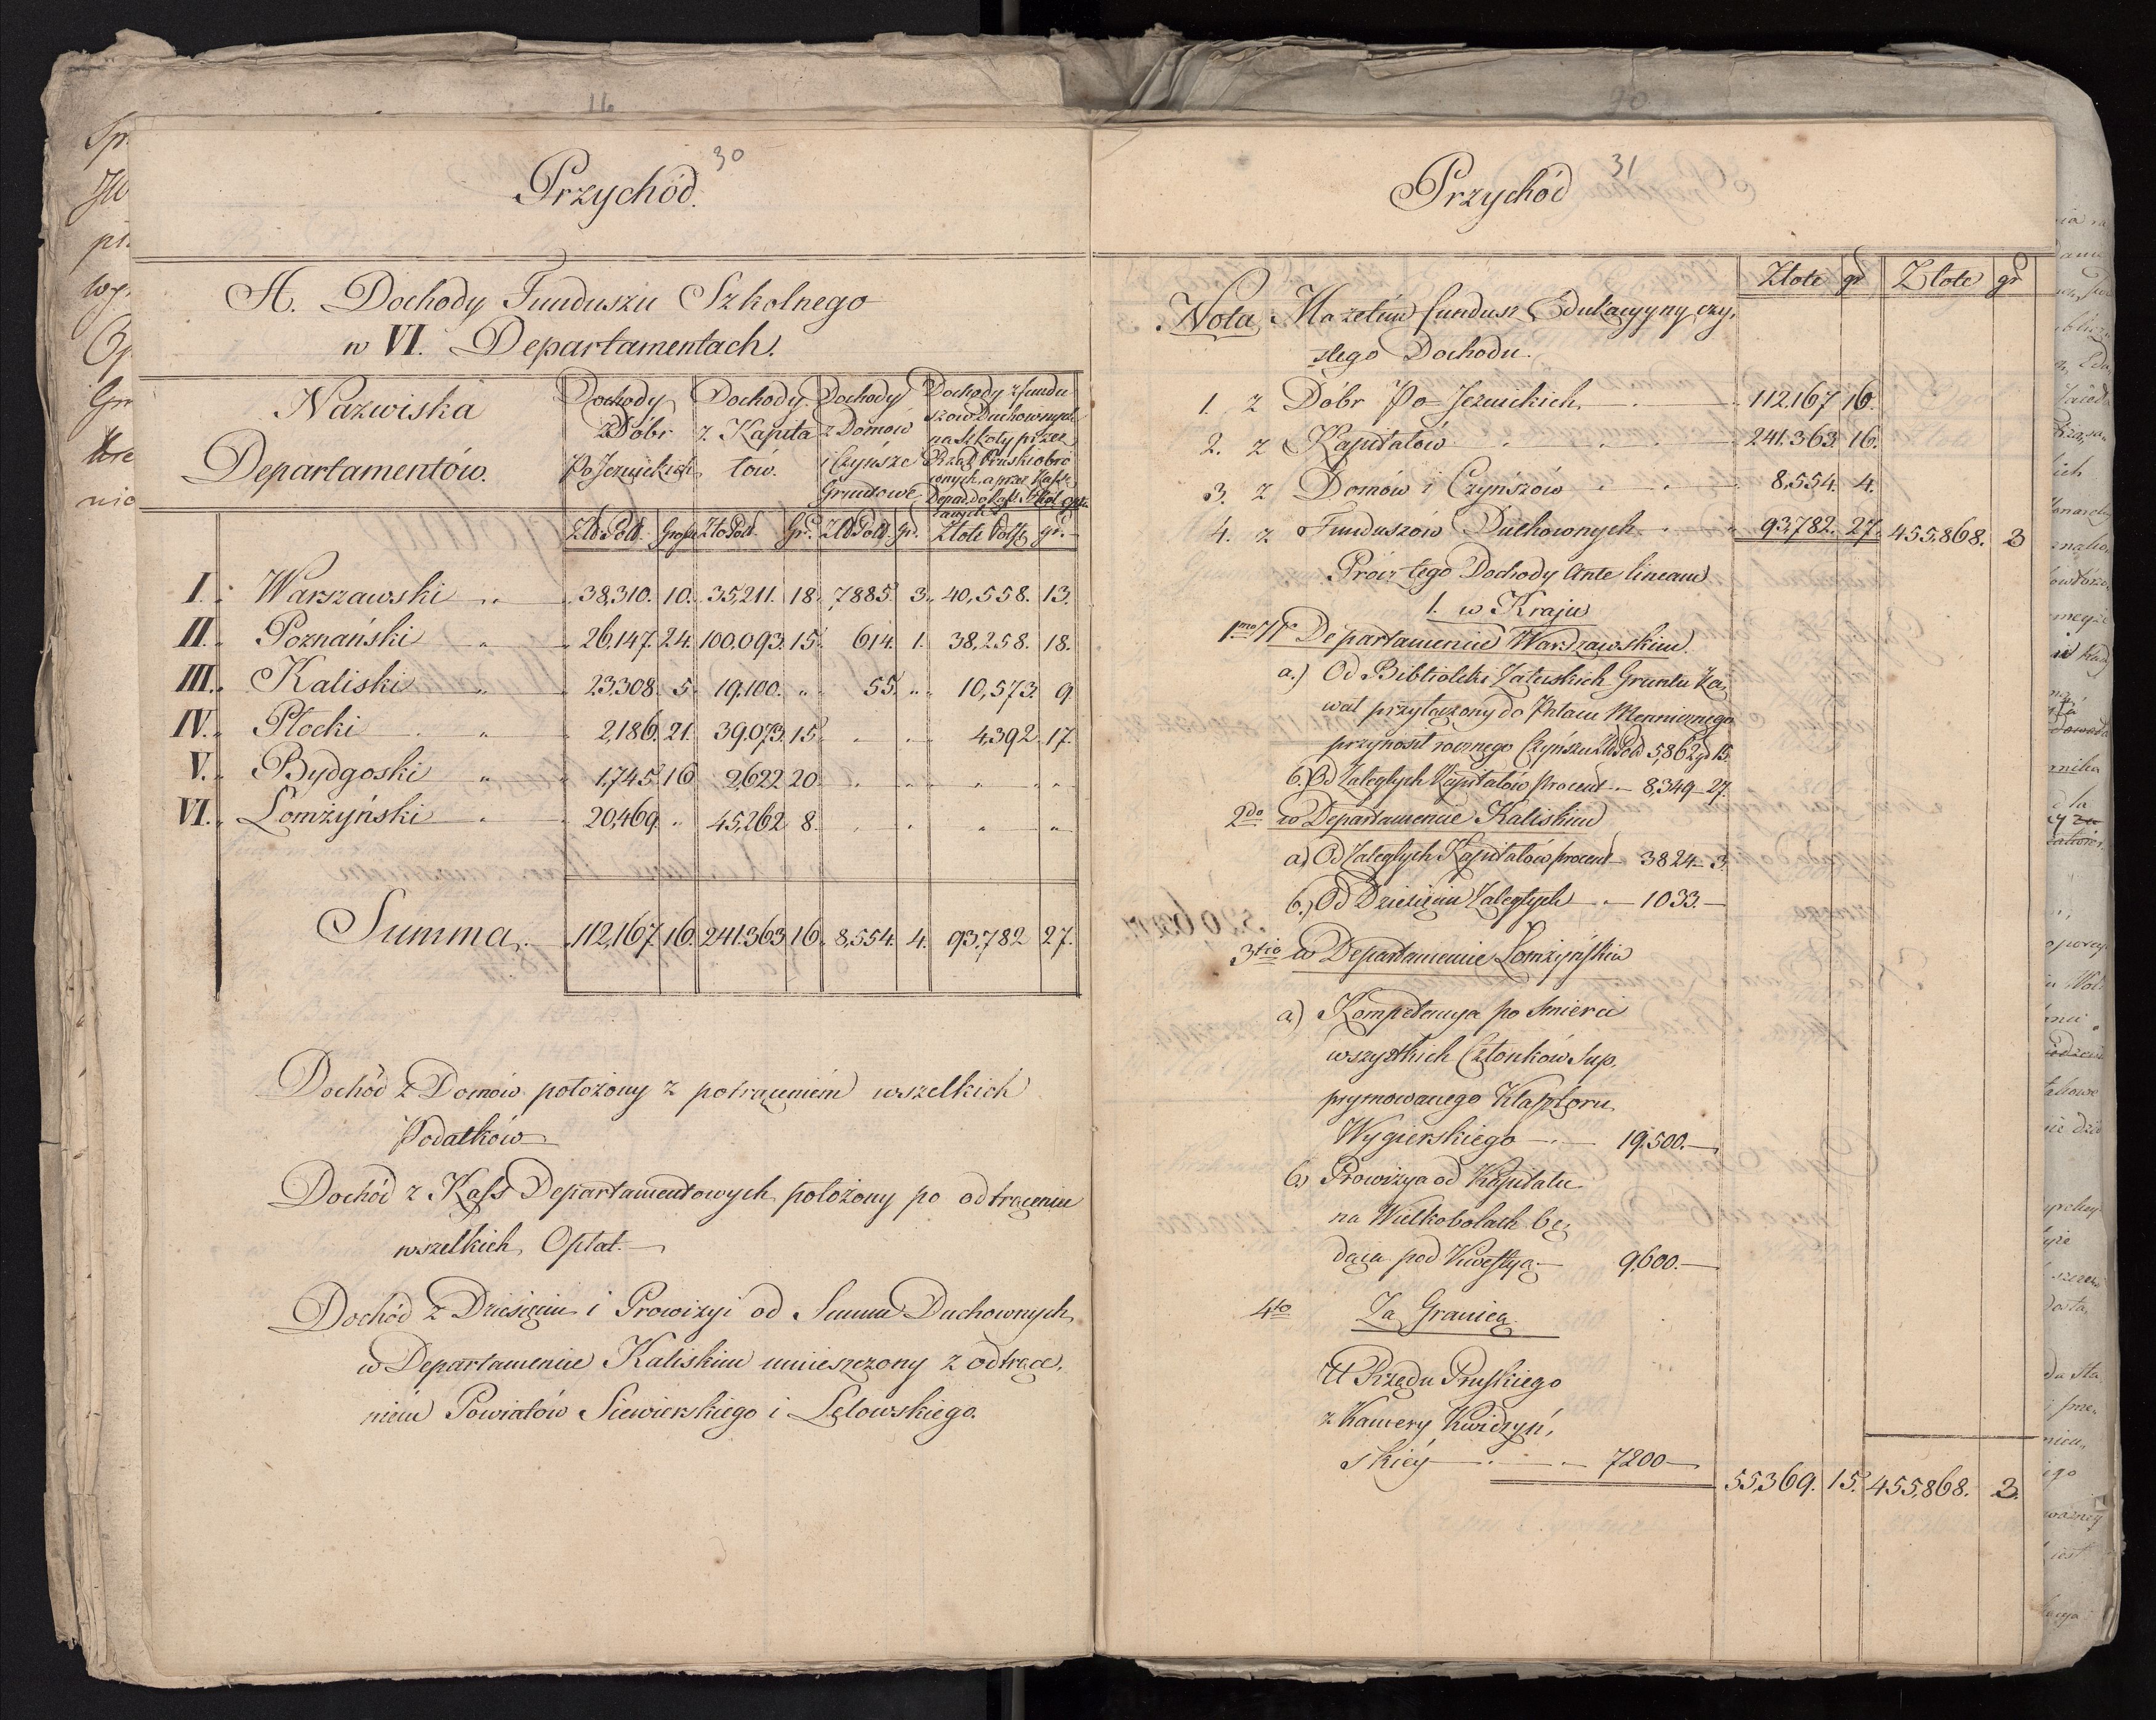 16
30
Przychód.
A. Dochody Funduszu Szkolnego
w VI. Departamentach.
Nazwiska Departamentów.
Dochody z Dóbr Po Jezuickich
Dochody z Kapitałów.
Dochody z Domów i Czynsze Gruntowe
Dochody z fundu
szow Duchownych
na Szkoły przez
Rząd Pruski obró
conych, a przez Kass
Depar. do Kass Szkol
Zło Pols. Grosze Zło Pols. Gr. Zło Pols. gr. Złote Polsk gr.
I. Warszawski 38,310. 10. 35,211. 18. 7885. 3. 40,558. 13.
II. Poznański 26,147. 24. 100,093. 15. 614. 1. 38,258. 18.
III. Kaliski 23,308. 5. 19,100. „ 55 „ 10,573 9.
IV. Płocki 2,186. 21. 39,073. 15. „ „ 4,392. 17.
V. Bydgoski 1,745. 16 2,622 20. „ „ „ „
VI. Łomżyński 20,469. „ 45,262 8. „ „ „ „
Summa. 112,167. 16. 241,363 16. 8,554. 4. 93,782 27.
Dochód z Domów położony z potrąceniem wszelkich
Podatków
Dochód z Kass Departamentowych położony po odtrąceniu
wszelkich Opłat.
Dochód z Dziesięcin i Prowizyi od Summ Duchownych
w Departamencie Kaliskim umieszczony z odtrące,
niem Powiatów Siewierskiego i Lelowskiego.
90
31
Przychód
Złote gr Złote gr
Nota. Ma zatém fundusz Edukacyyny czy,
stego Dochodu.
1. z Dóbr Po-Jezuickich 112,167 16.
2. z Kapitałów 241,363 16.
3. z Domów i Czynszów 8,554. 4.
4. z Funduszów Duchownych 93,782. 27. 455,868. 3
Prócz tego Dochody Ante lineam
1. w Kraju
1mo W Departamencie Warszawskim
a.) Od Biblioteki Załuskich Gruntu Ka,
wał przyłączony do Pałacu Menniczego
przynosił rocznego Czynszu Zło Pols 5,862 gr 15.
b.) Od Zaległych Kapitałów procent 8,349 - 27.
2do w Departamencie Kaliskim
a.) Od Zaległych Kapitałów procent 3824 - 3.
b.) Od Dziesięcin Zaległych 1033. -
3tio w Departamencie Łomżyńskim
a.) Kompetencya po śmierci
wszystkich Członków Sup,
prymowanego Klasztoru
Wygierskiego 19,500. -
b.) Prowizya od Kapitału
na Wielkobolach bę,
dąca pod Kwestyą. - 9,600. -
4to Za Granicą.
U Rządu Pruskiego
z Kamery Kwidzyń,
skiéy 7200 -
55,369. 15. 455,868. 3.